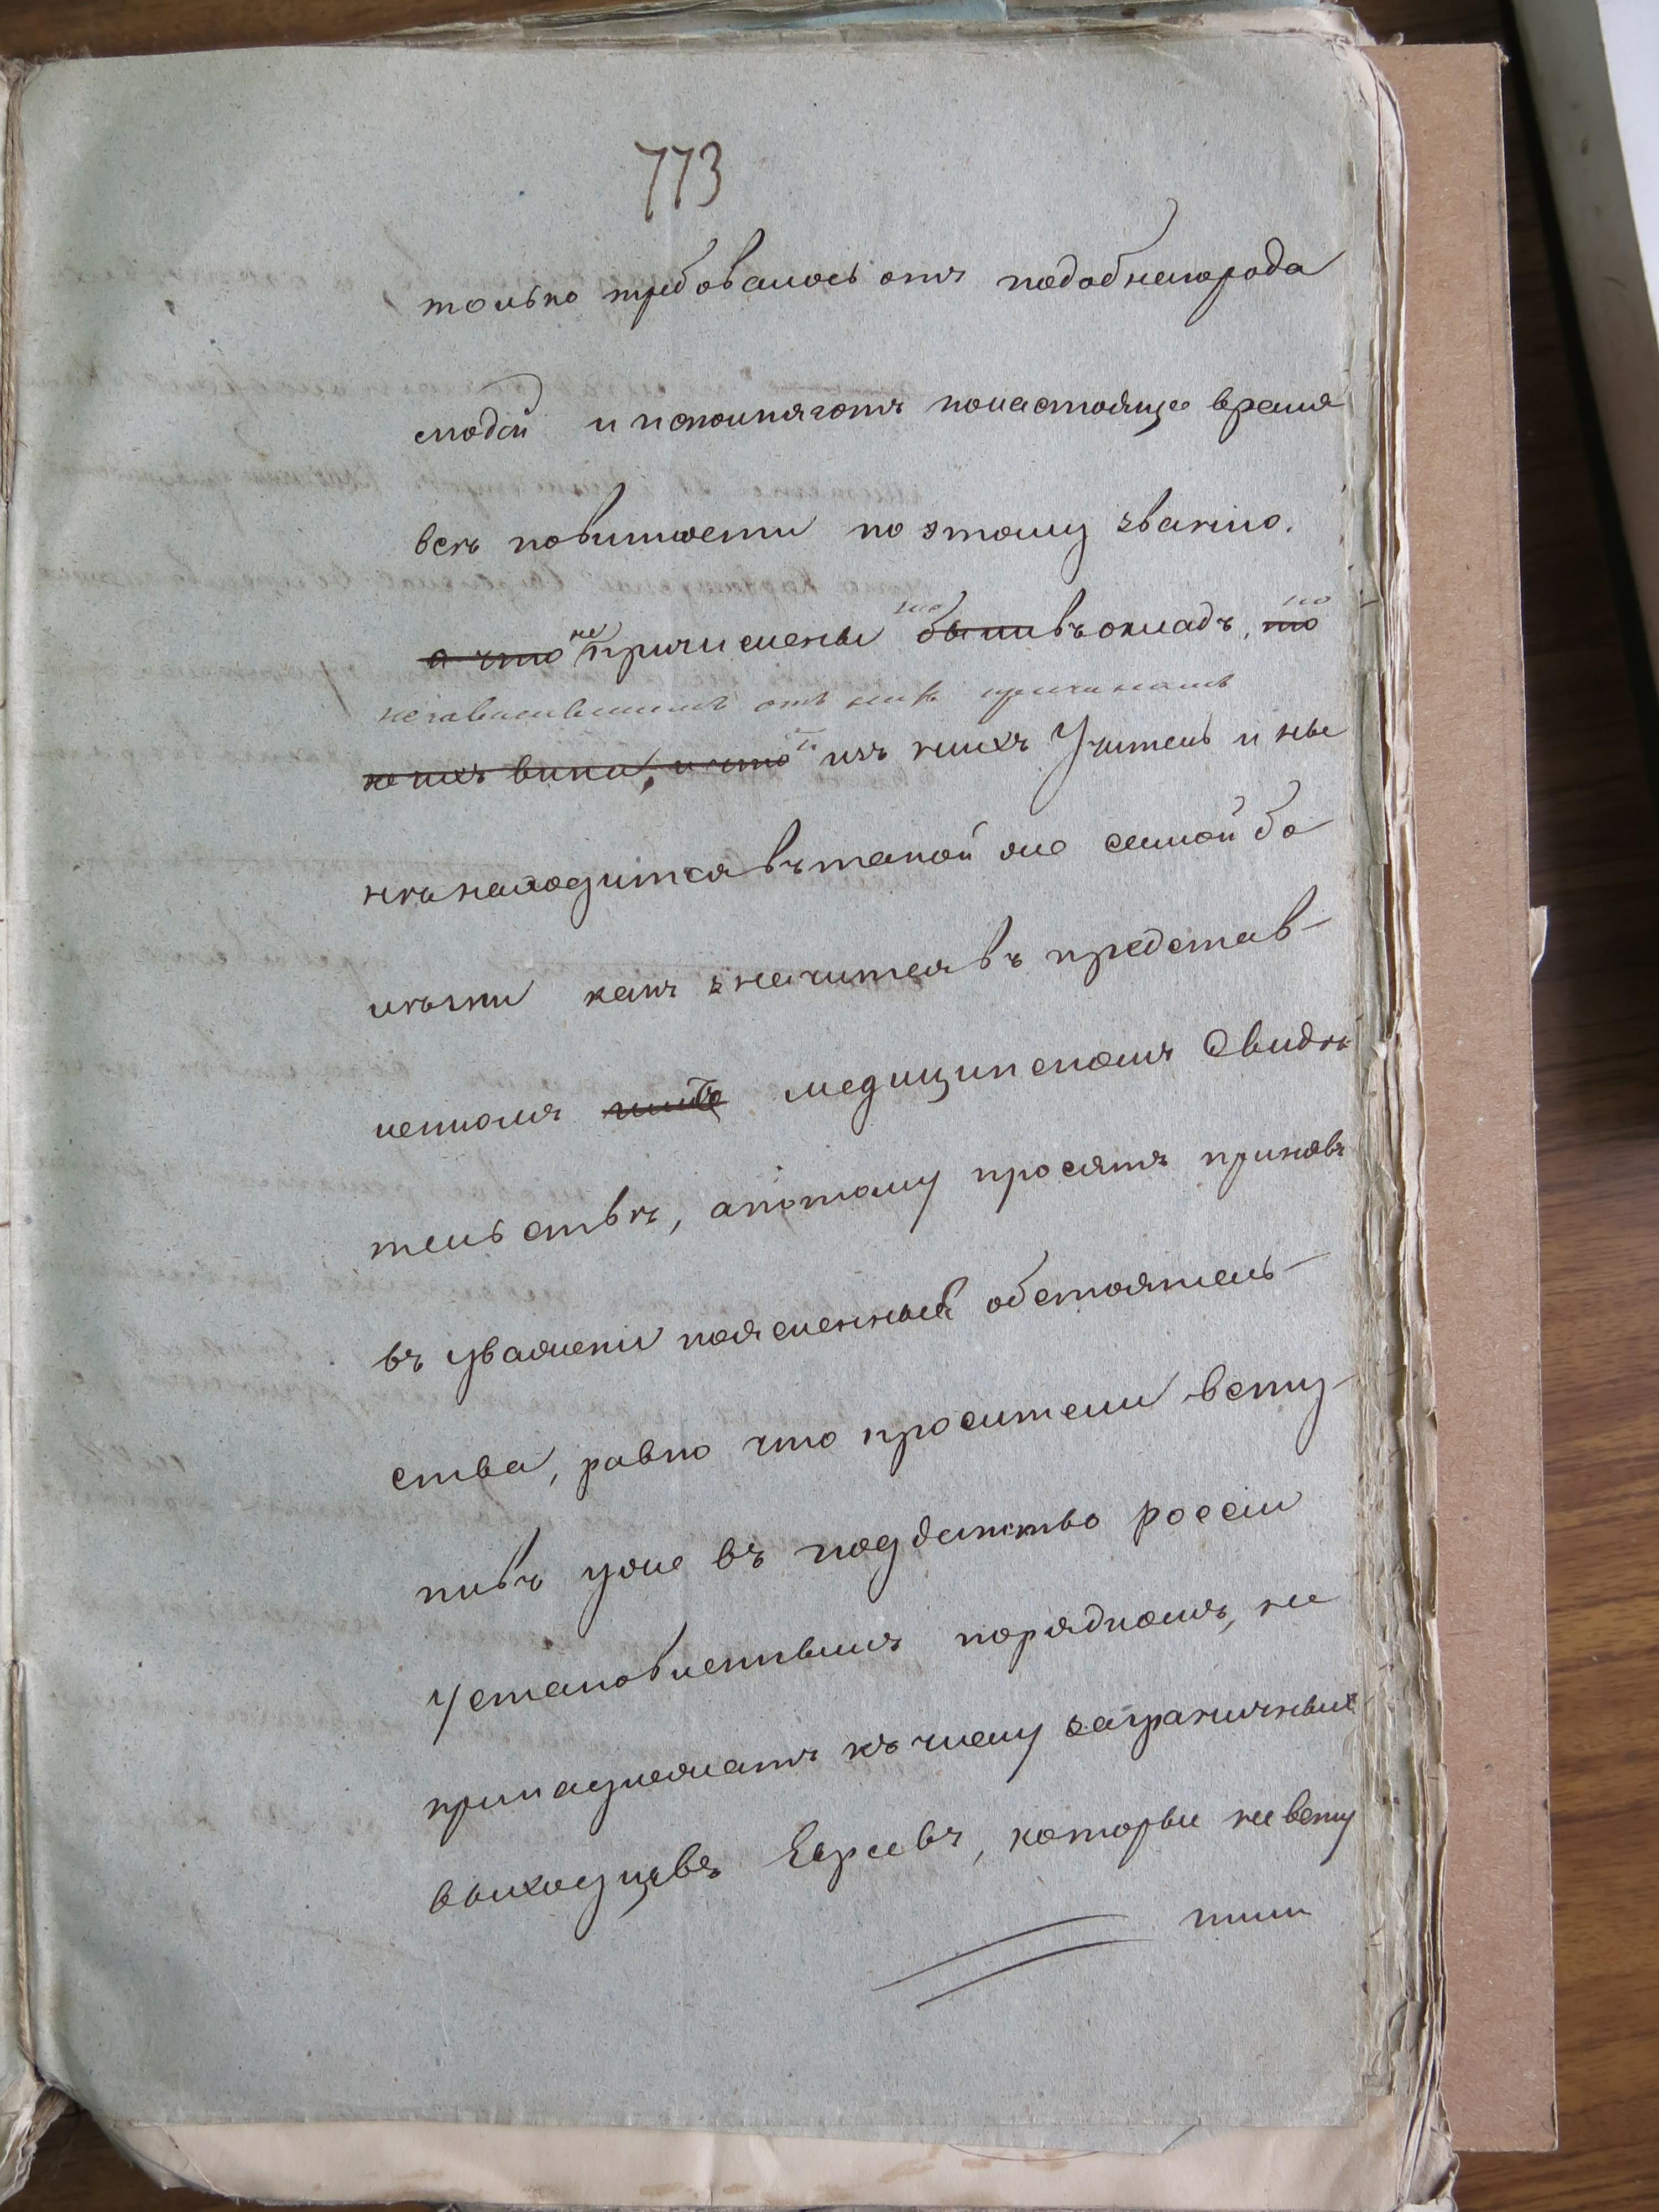 773
только требовалось отъ подобнагорода
людей и исполняютъ понастоящее время
всѣ повинности по этому званію.
а что не причислены то были въ окладъ, то по
независѣвшимъ отъ нихъ причинамъ
не ихъ вина, и что изъ нихъ Учитель и ны
нѣ находится въ такой же самой бо
лѣзни какъ значится въ представ-
ленномъ медицинскомъ Свидѣ
тельствѣ, апотому просятъ принявъ
въ уваженіи поясненныя обстоятель-
ства, равно что просители всту-
пивъ уже въ подданство россіи
Установленнымъ порядкомъ, не
принадлежатъ къ числу заграничныхъ
выходцевъ Евреевъ, которые не всту
пили